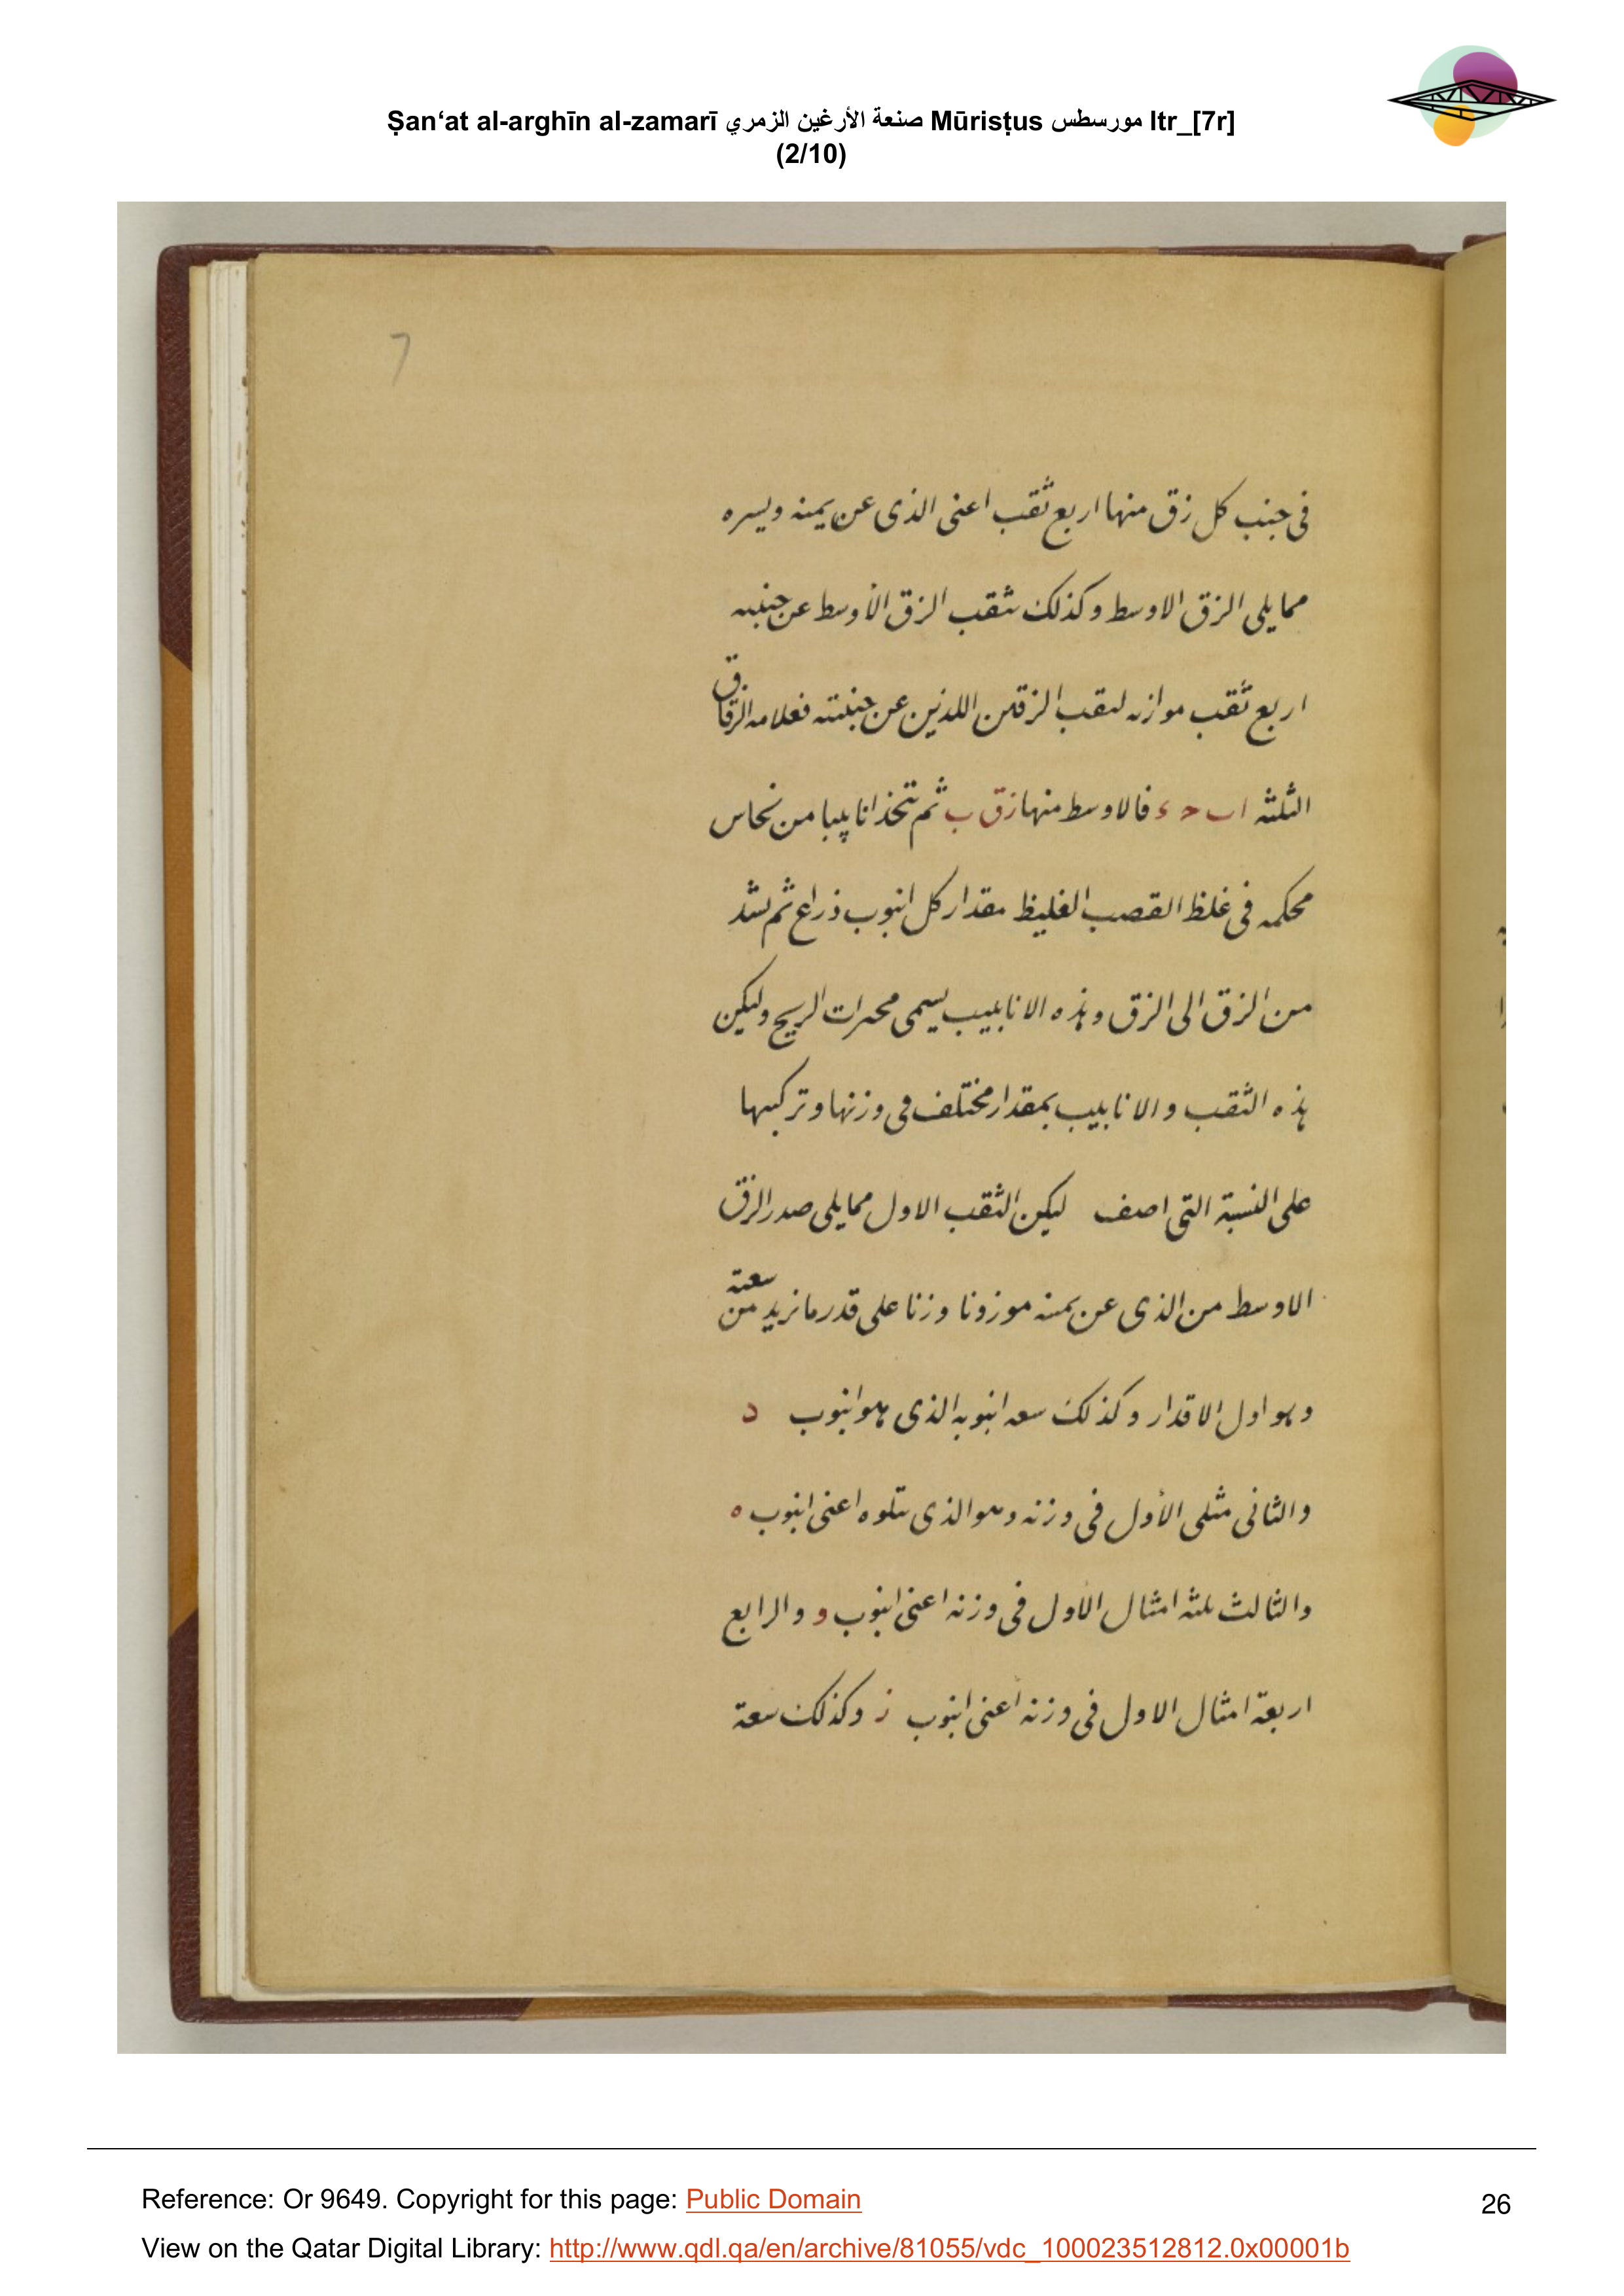 Ṣan‘at al-arghīn al-zamarī صنعة الأرغين الزمري Mūrisṭus مورسطس ltr_[7r]
(2/10)
7
فى جنب كل زق منها اربع ثقب اعنى الذى عن يمينه ويسره
مما يلى الزق الاوسط وكذلك ثقب الزق الأوسط عن جنبيه
اربع ثقب موازنه لثقب الزقين اللذين عن جنبيته فعلامه الزقاق
الثلثه ا ب ح ء فالاوسط منها زق ب ثم تتخذ انابيبا من نحاس
محكمه فى غلظ القصب الغليظ مقدار كل انبوب ذراع ثم تشد
من الزق الى الزق وهذه الانابيب يسمى الريح وليكن
هذه الثقب والانابيب بمقدار مختلف فى وزنها وتركيبها
على النسبة التى اصف ليكن الثقب الاول مما يلى صدر الزق
الاوسط من الذى عن يمينه موزونا وزنا على قدر ما نريد من سعته
وهو اول الاقدار وكذلك سعه انبوبه الذى هو انبوب د
والثانى مثلى الأول فى وزنه وهو الذى يتلوه اعنى انبوب ه
والثالث ثلثه امثال الأول فى وزنه اعنى انبوب و والرابع
اربعة امثال الاول فى وزنه أعنى انبوب ز وكذلك سعة
Reference: Or 9649. Copyright for this page: Public Domain
View on the Qatar Digital Library: http://www.qdl.qa/en/archive/81055/vdc_100023512812.0x00001b
26